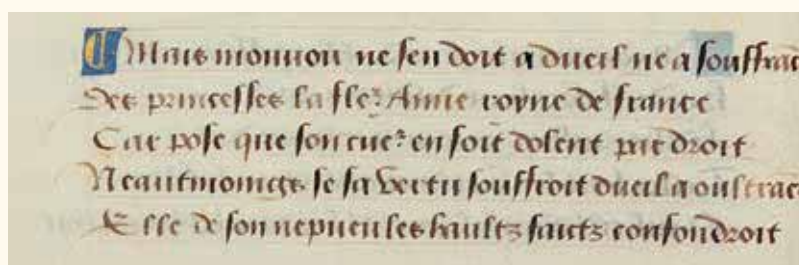 Mais mon non ne sen doit a dueil ne a souffrac
Des princesses la fleʳ Anne royne de france
Car pose que son cueʳ en soit dolent par droit
Neantmoings se sa vertu souffroit dueil a oultrac
Elle de son nepueu les haultz faictz confondroit